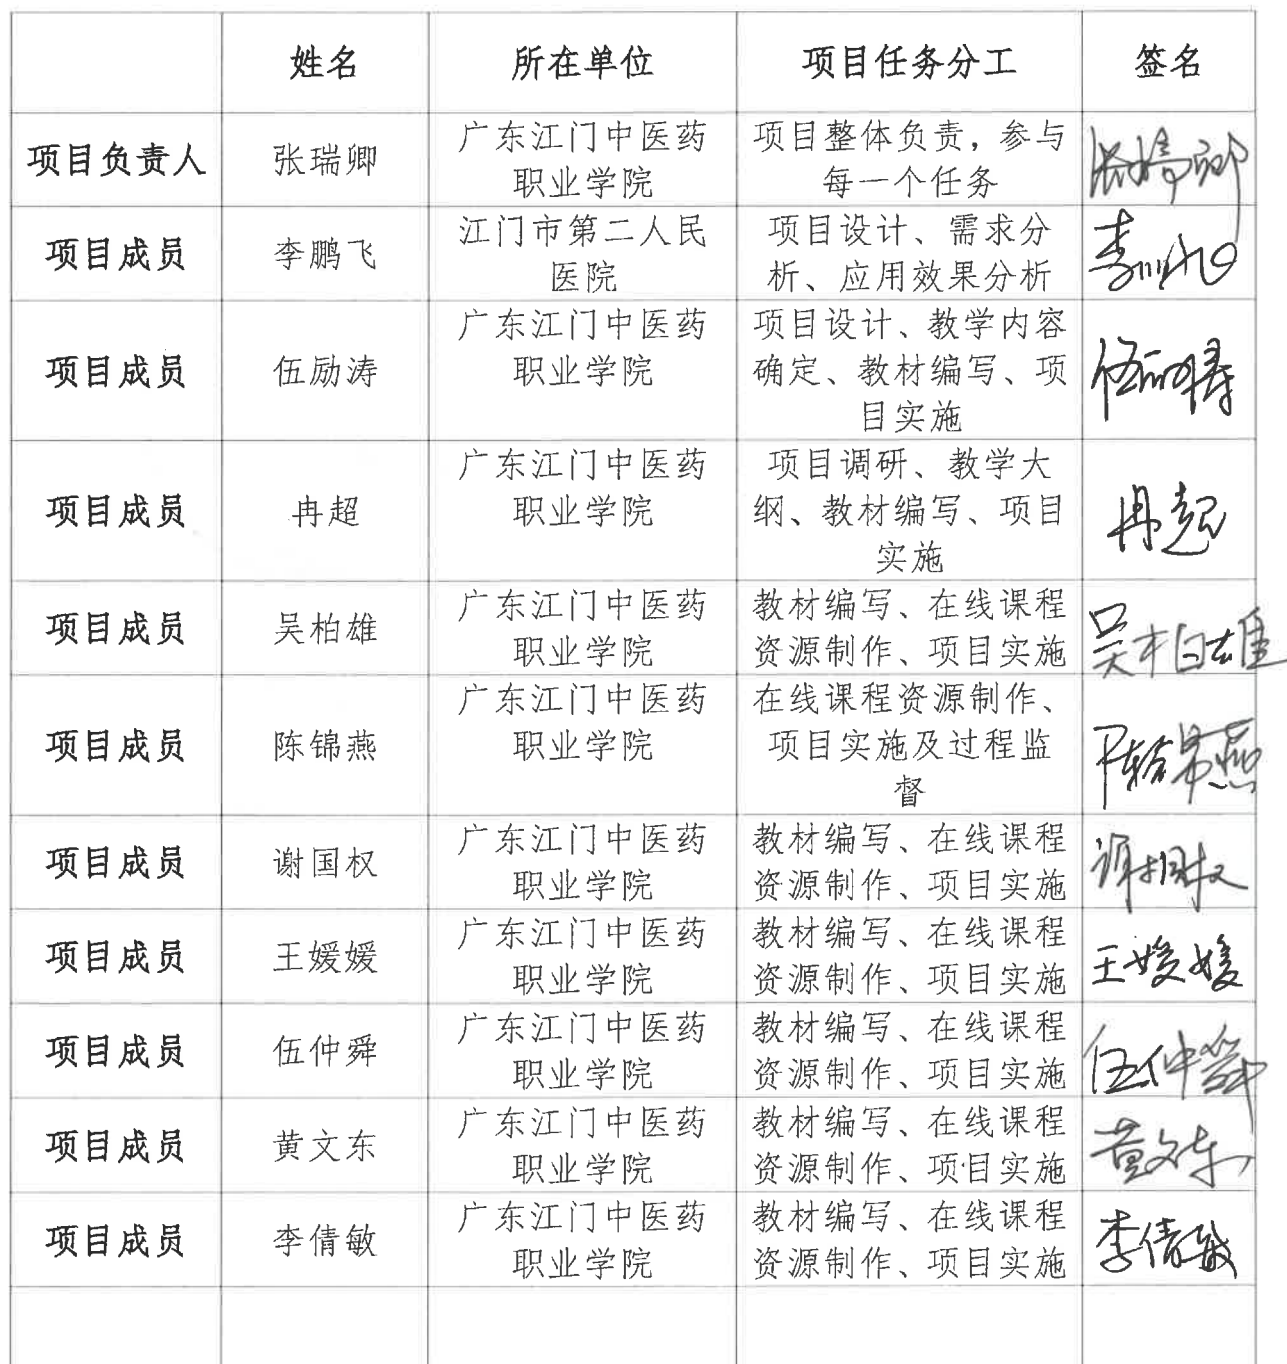 姓名 所在单位 项目任务分工 签名
项目负责人 张瑞卿 广东江门中医药职业学院 项目整体负责，参与每一个任务
项目成员 李鹏飞 江门市第二人民医院 项目设计、需求分析、应用效果分析
项目成员 伍励涛 广东江门中医药职业学院 项目设计、教学内容确定、教材编写、项目实施
项目成员 冉超 广东江门中医药职业学院 项目调研、教学大纲、教材编写、项目实施 冉超
项目成员 吴柏雄 广东江门中医药职业学院 教材编写、在线课程资源制作、项目实施 吴柏雄
项目成员 陈锦燕 广东江门中医药职业学院 在线课程资源制作、项目实施及过程监督 陈锦燕
项目成员 谢国权 广东江门中医药职业学院 教材编写、在线课程资源制作、项目实施
项目成员 王媛媛 广东江门中医药职业学院 教材编写、在线课程资源制作、项目实施 王媛媛
项目成员 伍仲舜 广东江门中医药职业学院 教材编写、在线课程资源制作、项目实施 伍仲舜
项目成员 黄文东 广东江门中医药职业学院 教材编写、在线课程资源制作、项目实施 黄文东
项目成员 李倩敏 广东江门中医药职业学院 教材编写、在线课程资源制作、项目实施 李倩敏